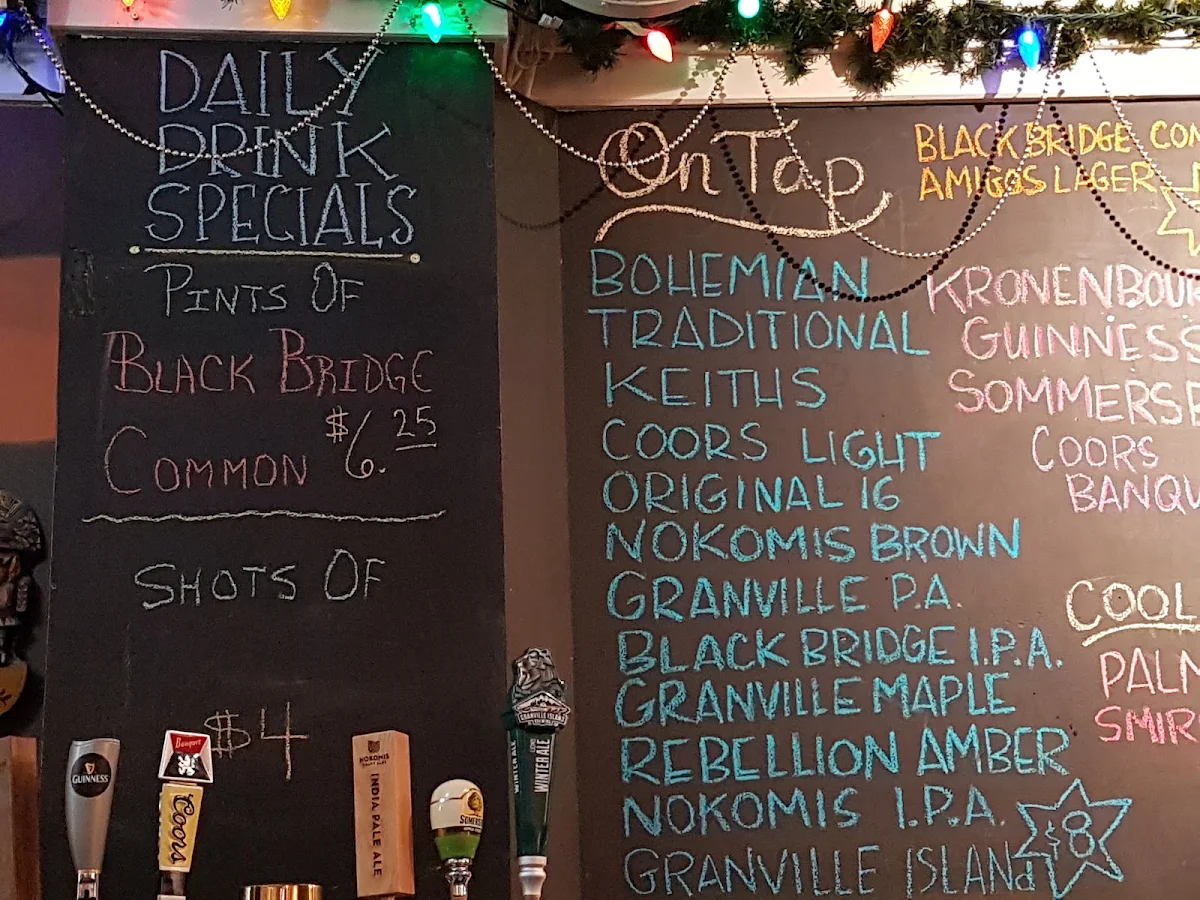 DAILY
DRINK
SPECIALS
PINTS OF
BLACK BRIDGE
COMMON $6.25
SHOTS OF
$4
On Tap
BOHEMIAN
TRADITIONAL
KEITHS
COORS LIGHT
ORIGINAL 16
NOKOMIS BROWN
GRANVILLE P.A.
BLACK BRIDGE I.P.A.
GRANVILLE MAPLE
REBELLION AMBER
NOKOMIS I.P.A.
GRANVILLE ISLANd
$8
BLACK BRIDGE CON
AMIGOS LAGER
KRONENBOU
GUINNESS
SOMMERSE
COORS
BANQU
COOL
PALM
SMIR
GUINNESS
Banquet
Coors
NOKOMIS
INDIA PALE ALE
SOMERS
GRANVILLE ISLAND
WINTER ALE
WINTER ALE